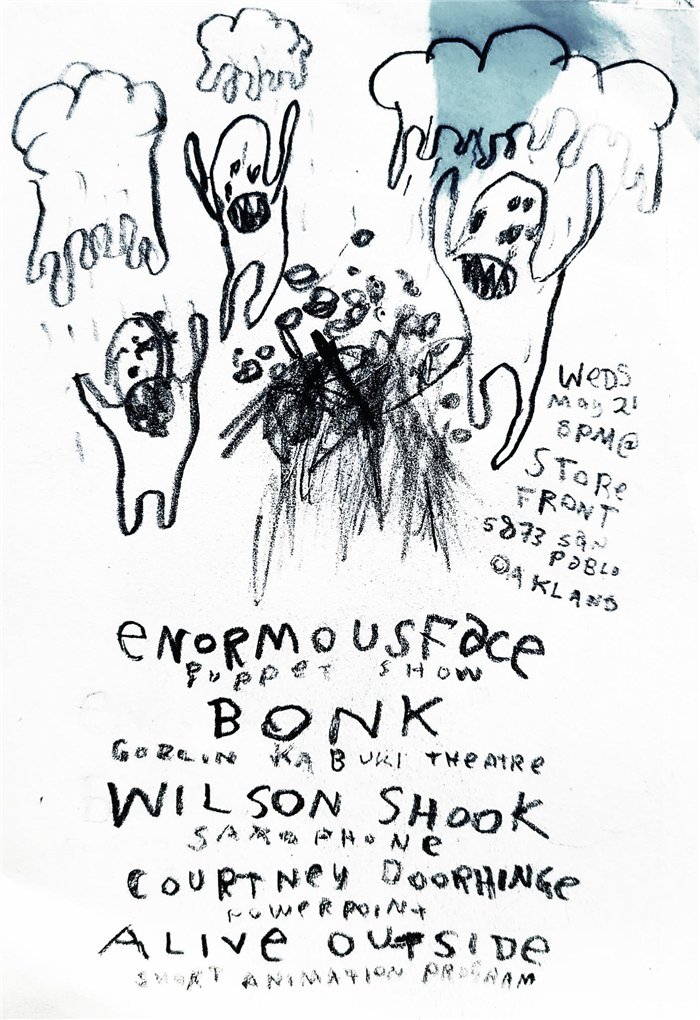 WeDS
May 21
8PM@
STORe
FRONT
5873 San
PaBLO
OAKLAND
eNORMOUSFace
PUPPeT SHOW
BONK
GOBLIN KABUKI THEATRE
WILSON SHOOK
SAXOPHONe
COURTNey DOORHINGe
POWERPOINT
ALIVe OUTSIDe
SHORT ANIMATION PROGRAM